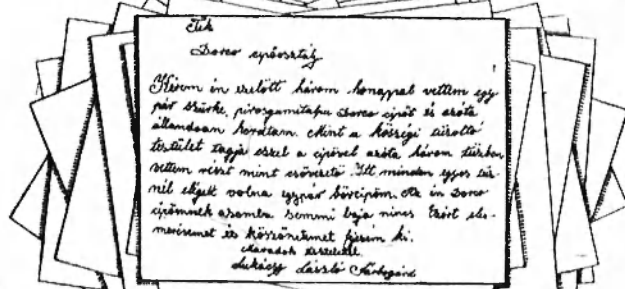 Tek.
Dorco cipőosztály
Kérem én ezelött három honappal vettem egy
pár szürke, pirosgumitalpu Dorco cipőt és azóta
állandoan hordtam. Mint a községi tüzoltó
testület tagja ezzel a cipővel azóta három tüzben
vettem részt mint csővezető. Itt minden egyes tüz-
nél elégett volna egypár bőrcipőm. Az én Dorco
cipőmnek azomba semmi baja nincs. Ezért elis-
merésemet és köszönetemet fejezem ki.
Maradok tisztelettel
Lukácsy László Sárbogárd